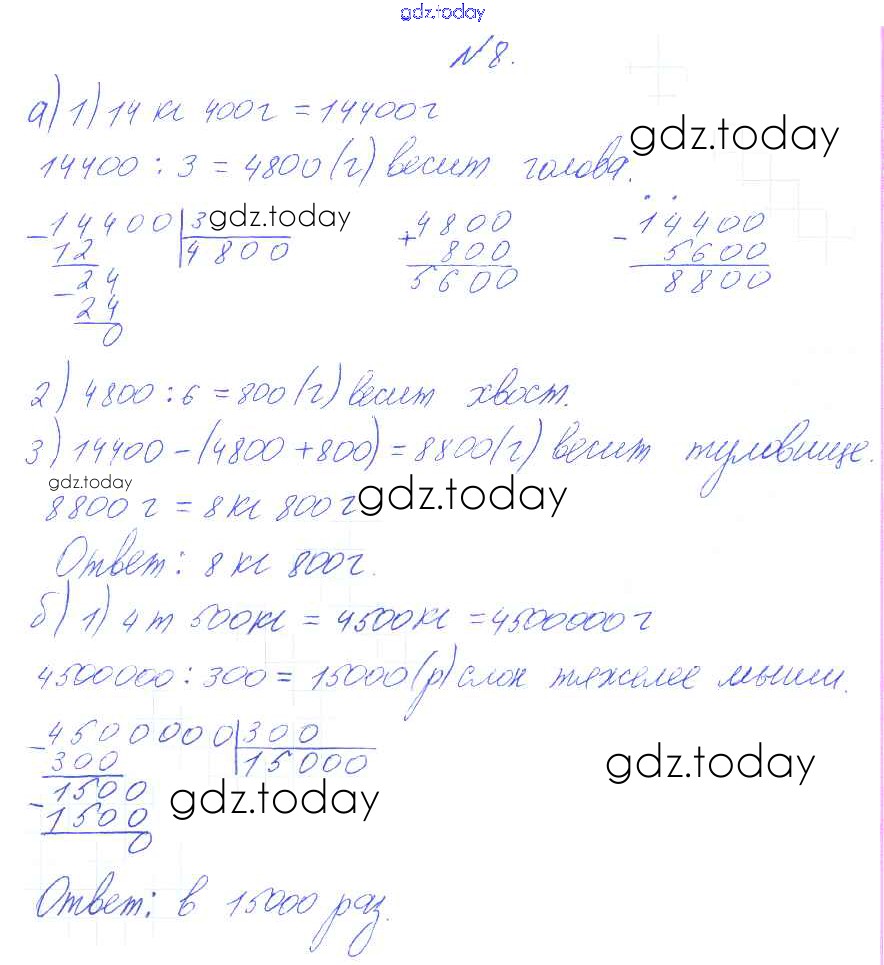 gdz.today
№8.
а) 1) 14 кг 400г = 14400г
gdz.today
14400 : 3 = 4800 (г) весит голова.
14400 | 3 gdz.today 4800 14400
- 12 | 4800 + 800 - 5600
- 24 5600 8800
24
0
2) 4800 : 6 = 800 (г) весит хвост.
3) 14400 - (4800 + 800) = 8800 (г) весит туловище.
gdz.today
8800 г = 8 кг 800 г gdz.today
Ответ: 8 кг 800г.
б) 1) 4 т 500кг = 4500кг = 4500000г
4500000 : 300 = 15000 (р) слон тяжелее мыши.
- 4500000 | 300
300 | 15000 gdz.today
- 1500 gdz.today
1500
0
Ответ: в 15000 раз.